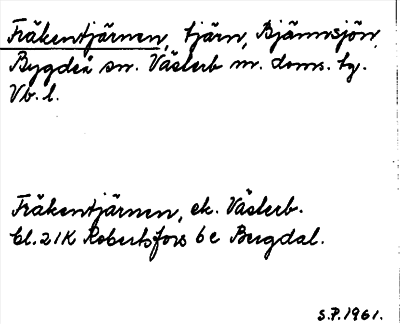 Fräkentjärnen, tjärn, Bjännsjön,
Bygdeå sn. Västerb. n. doms. tg.
Vb. l.
Fräkentjärnen, ek. Västerb.
bl. 21K Robertsfors 6e Bergdal.
S.P. 1961.